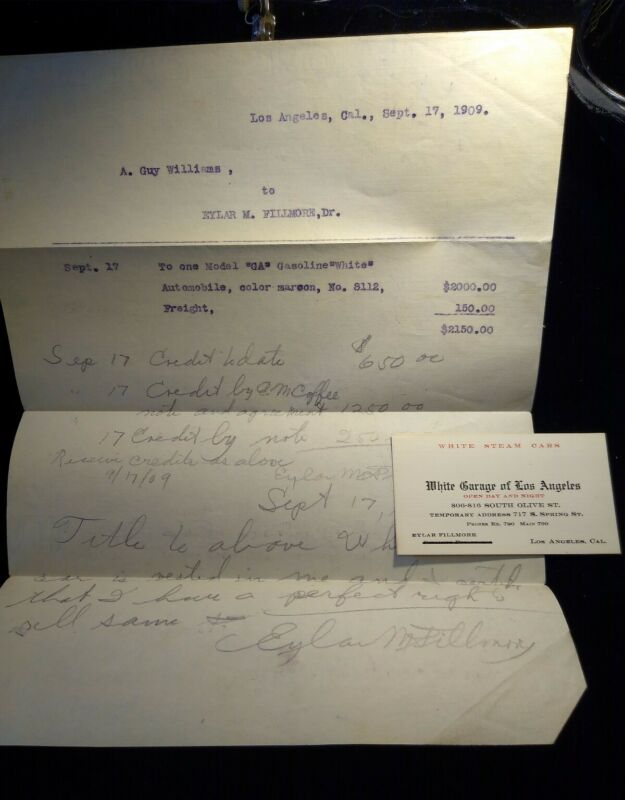 Los Angeles, Cal., Sept. 17, 1909.
A. Guy Williams,
to
EYLAR M. FILLMORE,Dr.
Sept. 17 To one Model "GA" Gasoline"White"
Automobile, color maroon, No. 8112, $2000.00
Freight, 150.00
$2150.00
Sep 17 Credit to date $650 00
" 17 Credit by McCoffee
note and agreement 1250 00
17 Credit by note 250
Receive credits as above
9/17/09 Eylar M
Sept 17,
Title to above Wh
car is vested in me and I
that I have a perfect right to
sell same
Eylar M Fillmore
WHITE STEAM CARS
White Garage of Los Angeles
OPEN DAY AND NIGHT
806-816 SOUTH OLIVE ST.
TEMPORARY ADDRESS 717 S. SPRING ST.
PHONES EX. 790 MAIN 790
EYLAR FILLMORE
LOS ANGELES, CAL.